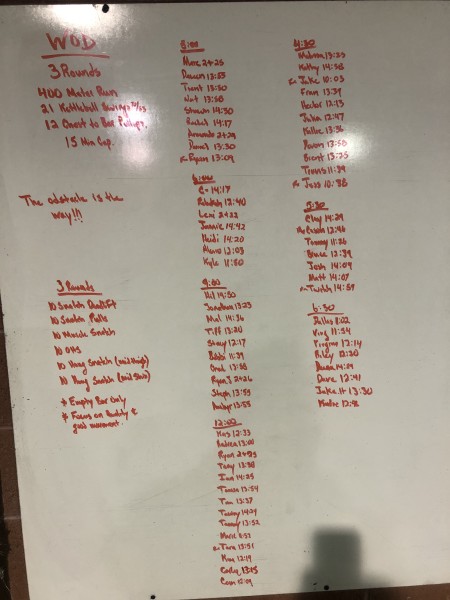 WOD
3 Rounds
400 Meter Run
21 Kettlebell Swings
12 Chest to Bar Pullups
15 Min Cap.
The obstacle is the
way!!!
3 Rounds
10 Snatch Deadlift
10 Snatch Pulls
10 Muscle Snatch
10 OHS
10 Hang Snatch (mid thigh)
10 Hang Snatch (mid shin)
* Empty Bar Only
* Focus on Quality &
good movement.
5:00
Alex 2+25
13:55
Trent 13:50
Nat 13:58
Shawn 14:30
Rachel 14:17
Amanda 2+29
Daniel 13:30
Ryan 13:09
6:00
C- 14:17
Rebekah 12:40
Levi 2+22
Jannie 14:42
Heidi 14:20
12:03
Kyle 11:50
9:00
14:30
Jonathan 13:23
Mel 14:36
Tiff 13:20
Stacy 12:17
Bobbi 11:39
Brad 13:58
Ryan J 2+26
Steph 13:55
13:55
12:00
12:33
Andrea 13:00
Ryan
Tony 13:38
Ian 14:25
13:54
Tom 13:37
Tammy 14:29
Tommy 13:52
8:53
Tara 13:51
12:19
Carly 13:15
12:09
4:30
13:23
Kathy 14:58
Jake 10:03
Fran 13:39
Hector 12:13
John 12:47
Kellie 13:36
13:58
Brent 13:25
Travis 11:39
Jess 10:38
5:30
Clay 14:29
12:46
Tommy 11:26
12:39
Josh 14:09
Matt 14:07
14:59
6:30
Dallas 8:02
King 11:54
12:14
Riley 12:30
14:29
Dave 12:41
Jake H 13:30